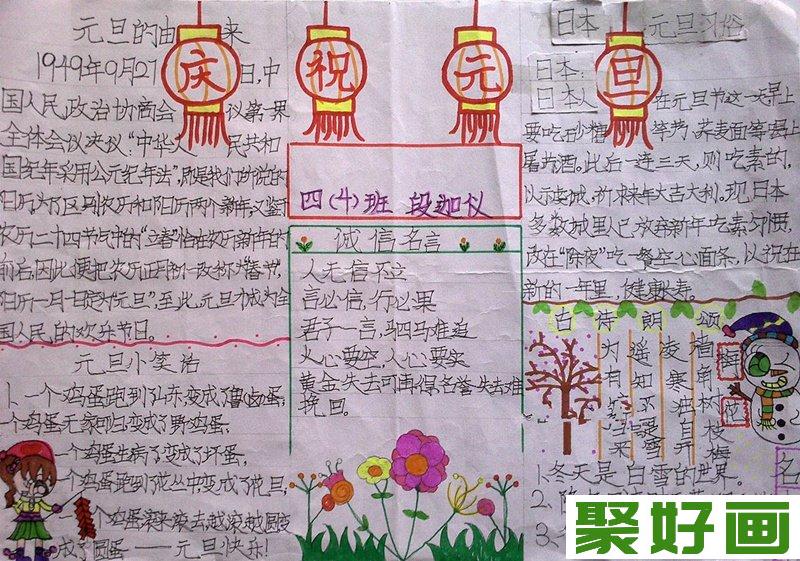 庆祝元旦
四(4)班 段迦仪
元旦的由来
1949年9月27日,中
国人民政治协商会议第一界
全体会议决议:“中华人民共和
国纪年采用公元纪年法”,即是我们所说的
阳历,为了区别农历和阳历两个新年,又鉴
农历二十四节气中的“立春”恰在农历新年的
前后,因此便把农历正月初一改称为“春节”,
阳历一月一日定为“元旦”,至此,元旦才成为全
国人民的欢乐节日。
元旦小笑话
1、一个鸡蛋跑到了山东,变成了鲁(卤)蛋;
一个鸡蛋无家可归,变成了野鸡蛋;
一个鸡蛋生病了,变成了坏蛋;
一个鸡蛋跑到了花丛中,变成了花旦,
一个鸡蛋滚来滚去,越滚越圆,变
成了圆蛋——元旦快乐!
诚信名言
人无信不立
言必信,行必果
君子一言,驷马难追
火心要空,人心要实
黄金失去可再得,名誉失去难
挽回。
日本元旦习俗
日本:
日本人在元旦节这一天早上
要吃砂糖竽艿、荞麦面等,晚上
屠苏酒。此后一连三天,则吃素的,
以示虔诚,祈求来年大吉大利。现日本
多数城里人已放弃新年吃素习惯,
改在“除夜”吃一餐空心面条,以祝在
新的一年里,健康长寿。
古诗朗颂
墙角数枝梅
凌寒独自开
遥知不是雪
为有暗香来
梅花
1.冬天是白雪的世界。
2、
3、
名
聚好画